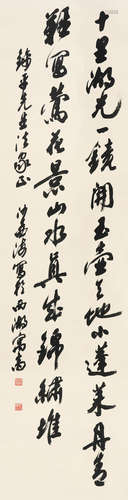 十里湖光一镜开玉壶天地小蓬莱丹青
难写莺花景山水真成锦绣堆
锦平先生法家正 沙孟海写于西湖寓斋